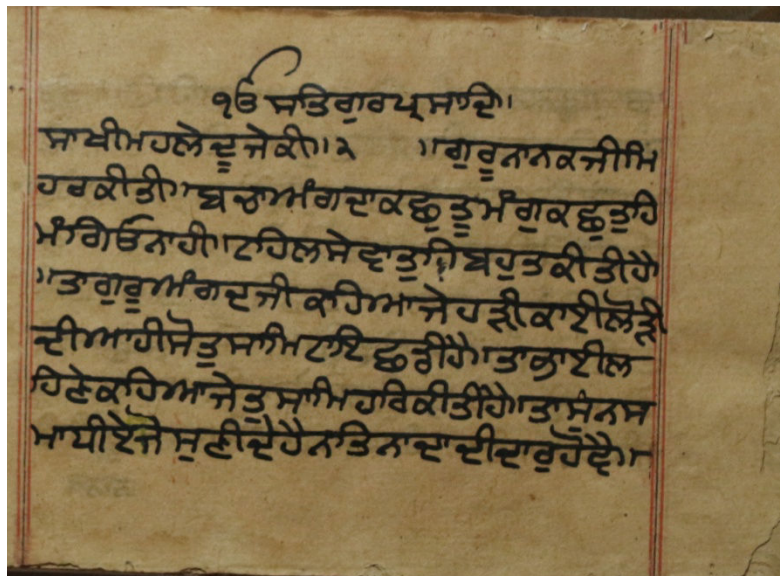 ੴ ਸਤਿਗੁਰਪ੍ਰਸਾਦਿ॥
ਸਾਖੀਮਹਲੇਦੂਜੇਕੀ॥੨ ॥ਗੁਰੂਨਾਨਕਜੀਮਿ
ਹਰਕੀਤੀ॥ਬਚਾਅੰਗਦਾਕਛੁਤੂਮੰਗੁਕਛੁਤੁਹਿ
ਮੰਗਿਓਨਾਹੀ॥ਟਹਿਲਸੇਵਾਤੁਹਿਬਹੁਤਕੀਤੀਹੈ
॥ਤਾਗੁਰੂਅੰਗਦਜੀਕਹਿਆਜੇ
ਦੀਆਹੀਸੋਤੁਸਾਮਿਟਾਇਛਡੀਹੈ॥ਤਾਭਾਈਲ
ਹਿਣੇਕਹਿਆਜੇਤੁਸਾਮਿਹਰਿਕੀਤੀਹੈ॥ਤਾਸੁੰਨਸ
ਮਾਧੀਏਜੋਸੁਣੀਦੇਹੈਨਤਿਨਾਦਾਦੀਦਾਰੁਹੋਵੈ॥